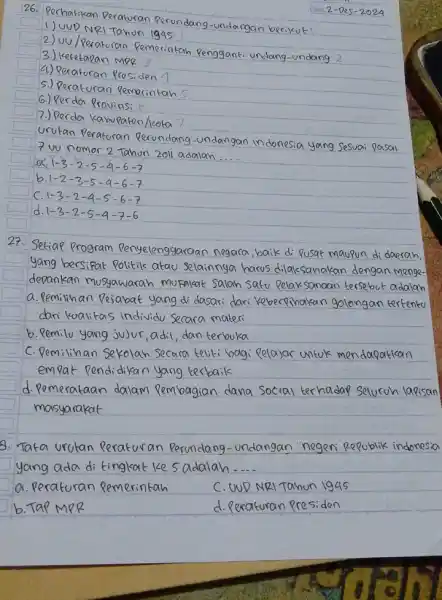 2-Des-2024
26. Perhatikan Peraturan Perundang-undangan berikut!
1.) UUD NRI Tahun 1945
2) UU/Peraturan Pemerintah Pengganti undang-undang 2
3.) Ketetapan MPR 3
4) Peraturan Presiden
5.) Peraturan Pemerintah 5
6) Perda Provinsi
7.) Perda Kabupaten/kota
Urutan Peraturan Perundang-undangan indonesia yang Sesuai Pasal
7 UU nomor 2 Tahun 2011 adalah ....
a. 1-3-2-5-4-6-7
b. 1-2-3-5-4-6-7
C. 1-3-2-4-5-6-7
d. 1-3-2-5-4-7-6
27. Setiap Program Penyelenggaraan negara, baik di Pusat maupun di daerah,
yang bersifat Politik atau selainnya harus dilaksanakan dengan menge-
depankan musyawarah mufakat Salah satu Pelaksanaan tersebut adalah
a. Pemilihan Pejabat yang di dasari dari keberpihakan golongan tertentu
dari kualitas individu secara materi
b. Pemilu yang jujur, adil, dan terbuka
C. Pemilihan Sekolah Secara teliti bagi Pelajar untuk mendapatkan
empat Pendidikan yang terbaik
d. Pemerataan dalam Pembagian dana Social terhadap Seluruh lapisan
masyarakat
8. Tata urutan Peraturan Perundang-undangan negeri Republik indonesia
yang ada di tingkat ke 5 adalah ....
a. Peraturan Pemerintah C. UUD NRI Tahun 1945
b. TAP MPR d. Peraturan Presiden